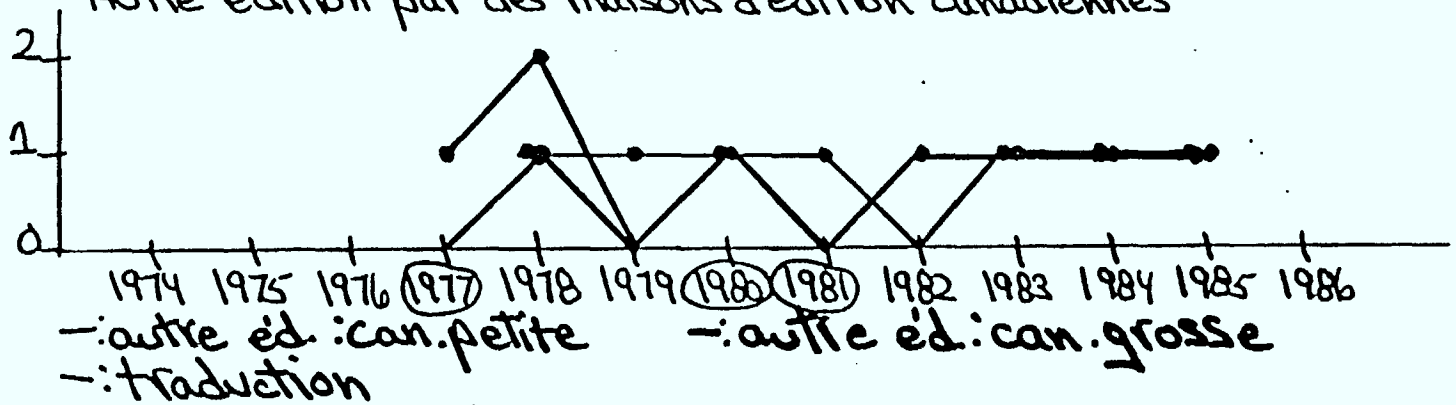 Autre édition par des maisons d'édition canadiennes
2
1
0
1974 1975 1976 1977 1978 1979 1980 1981 1982 1983 1984 1985 1986
-: autre éd.: can. petite -: autre éd.: can. grosse
-: traduction